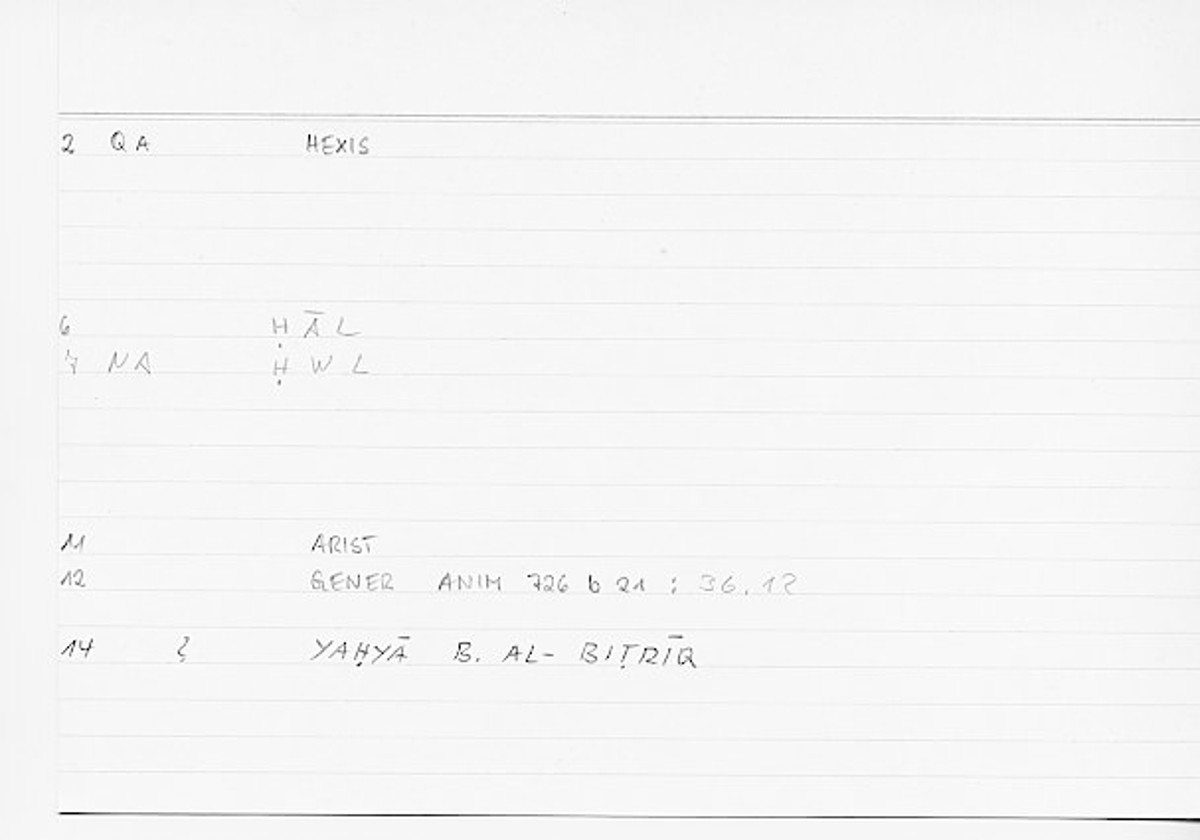 2 QA HEXIS
6 ḤĀL
7 NA ḤWL
11 ARIST
12 GENER ANIM 726 b 21 : 36.12
14 YAḤYĀ B. AL-BIṬRĪQ